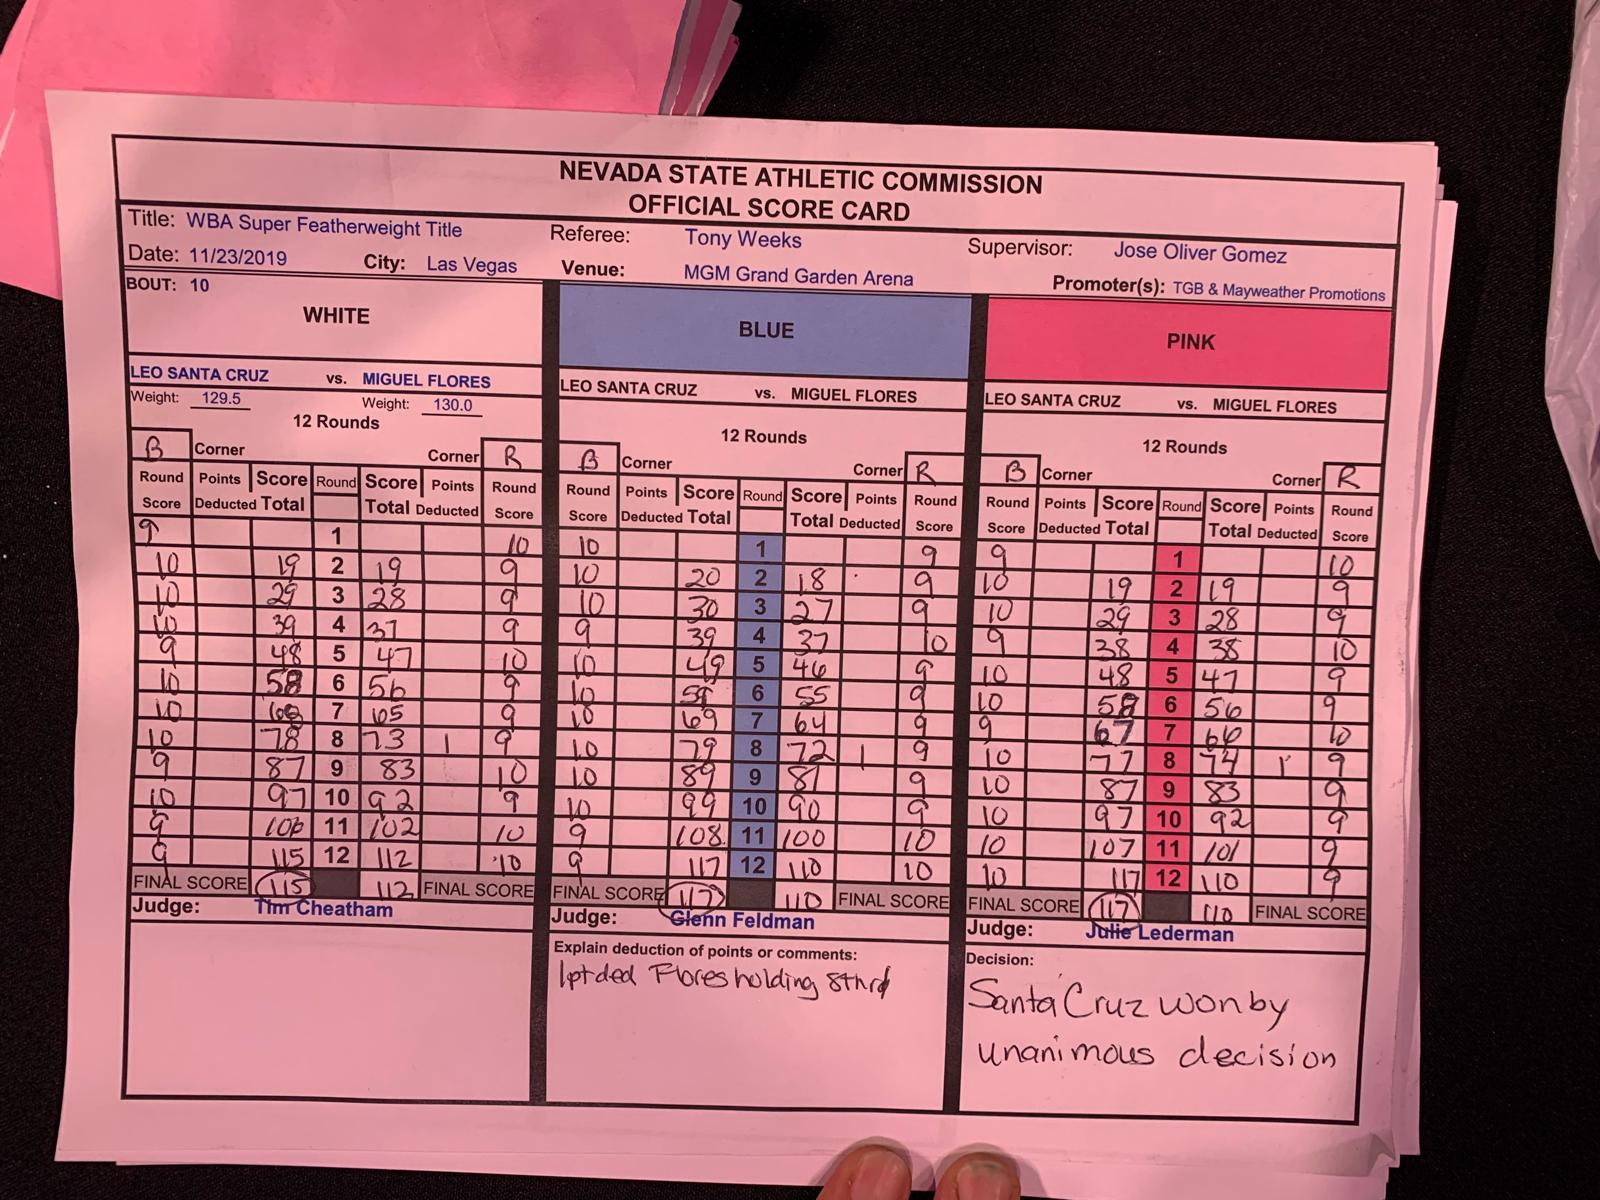 NEVADA STATE ATHLETIC COMMISSION
OFFICIAL SCORE CARD
Title: WBA Super Featherweight Title Referee: Tony Weeks Supervisor: Jose Oliver Gomez
Date: 11/23/2019 City: Las Vegas Venue: MGM Grand Garden Arena Promoter(s): TGB & Mayweather Promotions
BOUT: 10
WHITE
LEO SANTA CRUZ vs. MIGUEL FLORES
Weight: 129.5 Weight: 130.0
12 Rounds
B Corner Corner R
Round Score Points Deducted Score Total Round Score Total Points Deducted Round Score
9 1 10
10 19 2 19 9
10 29 3 28 9
10 39 4 37 9
9 48 5 47 10
10 58 6 56 9
10 68 7 65 9
10 78 8 73 1 9
9 87 9 83 10
10 97 10 92 9
9 106 11 102 10
9 115 12 112 10
FINAL SCORE 115 112 FINAL SCORE
Judge: Tim Cheatham
BLUE
LEO SANTA CRUZ vs. MIGUEL FLORES
12 Rounds
B Corner Corner R
Round Score Points Deducted Score Total Round Score Total Points Deducted Round Score
10 1 9
10 20 2 18 9
10 30 3 27 9
9 39 4 37 10
10 49 5 46 9
10 59 6 55 9
10 69 7 64 9
10 79 8 72 1 9
10 89 9 81 9
10 99 10 90 9
9 108 11 100 10
9 117 12 110 10
FINAL SCORE 117 110 FINAL SCORE
Judge: Glenn Feldman
Explain deduction of points or comments:
1pt ded Flores holding 8th rd
PINK
LEO SANTA CRUZ vs. MIGUEL FLORES
12 Rounds
B Corner Corner R
Round Score Points Deducted Score Total Round Score Total Points Deducted Round Score
9 1 10
10 19 2 19 9
10 29 3 28 9
9 38 4 38 10
10 48 5 47 9
10 58 6 56 9
9 67 7 66 10
10 77 8 74 1 9
10 87 9 83 9
10 97 10 92 9
10 107 11 101 9
10 117 12 110 9
FINAL SCORE 117 110 FINAL SCORE
Judge: Julie Lederman
Decision:
Santa Cruz won by
unanimous decision